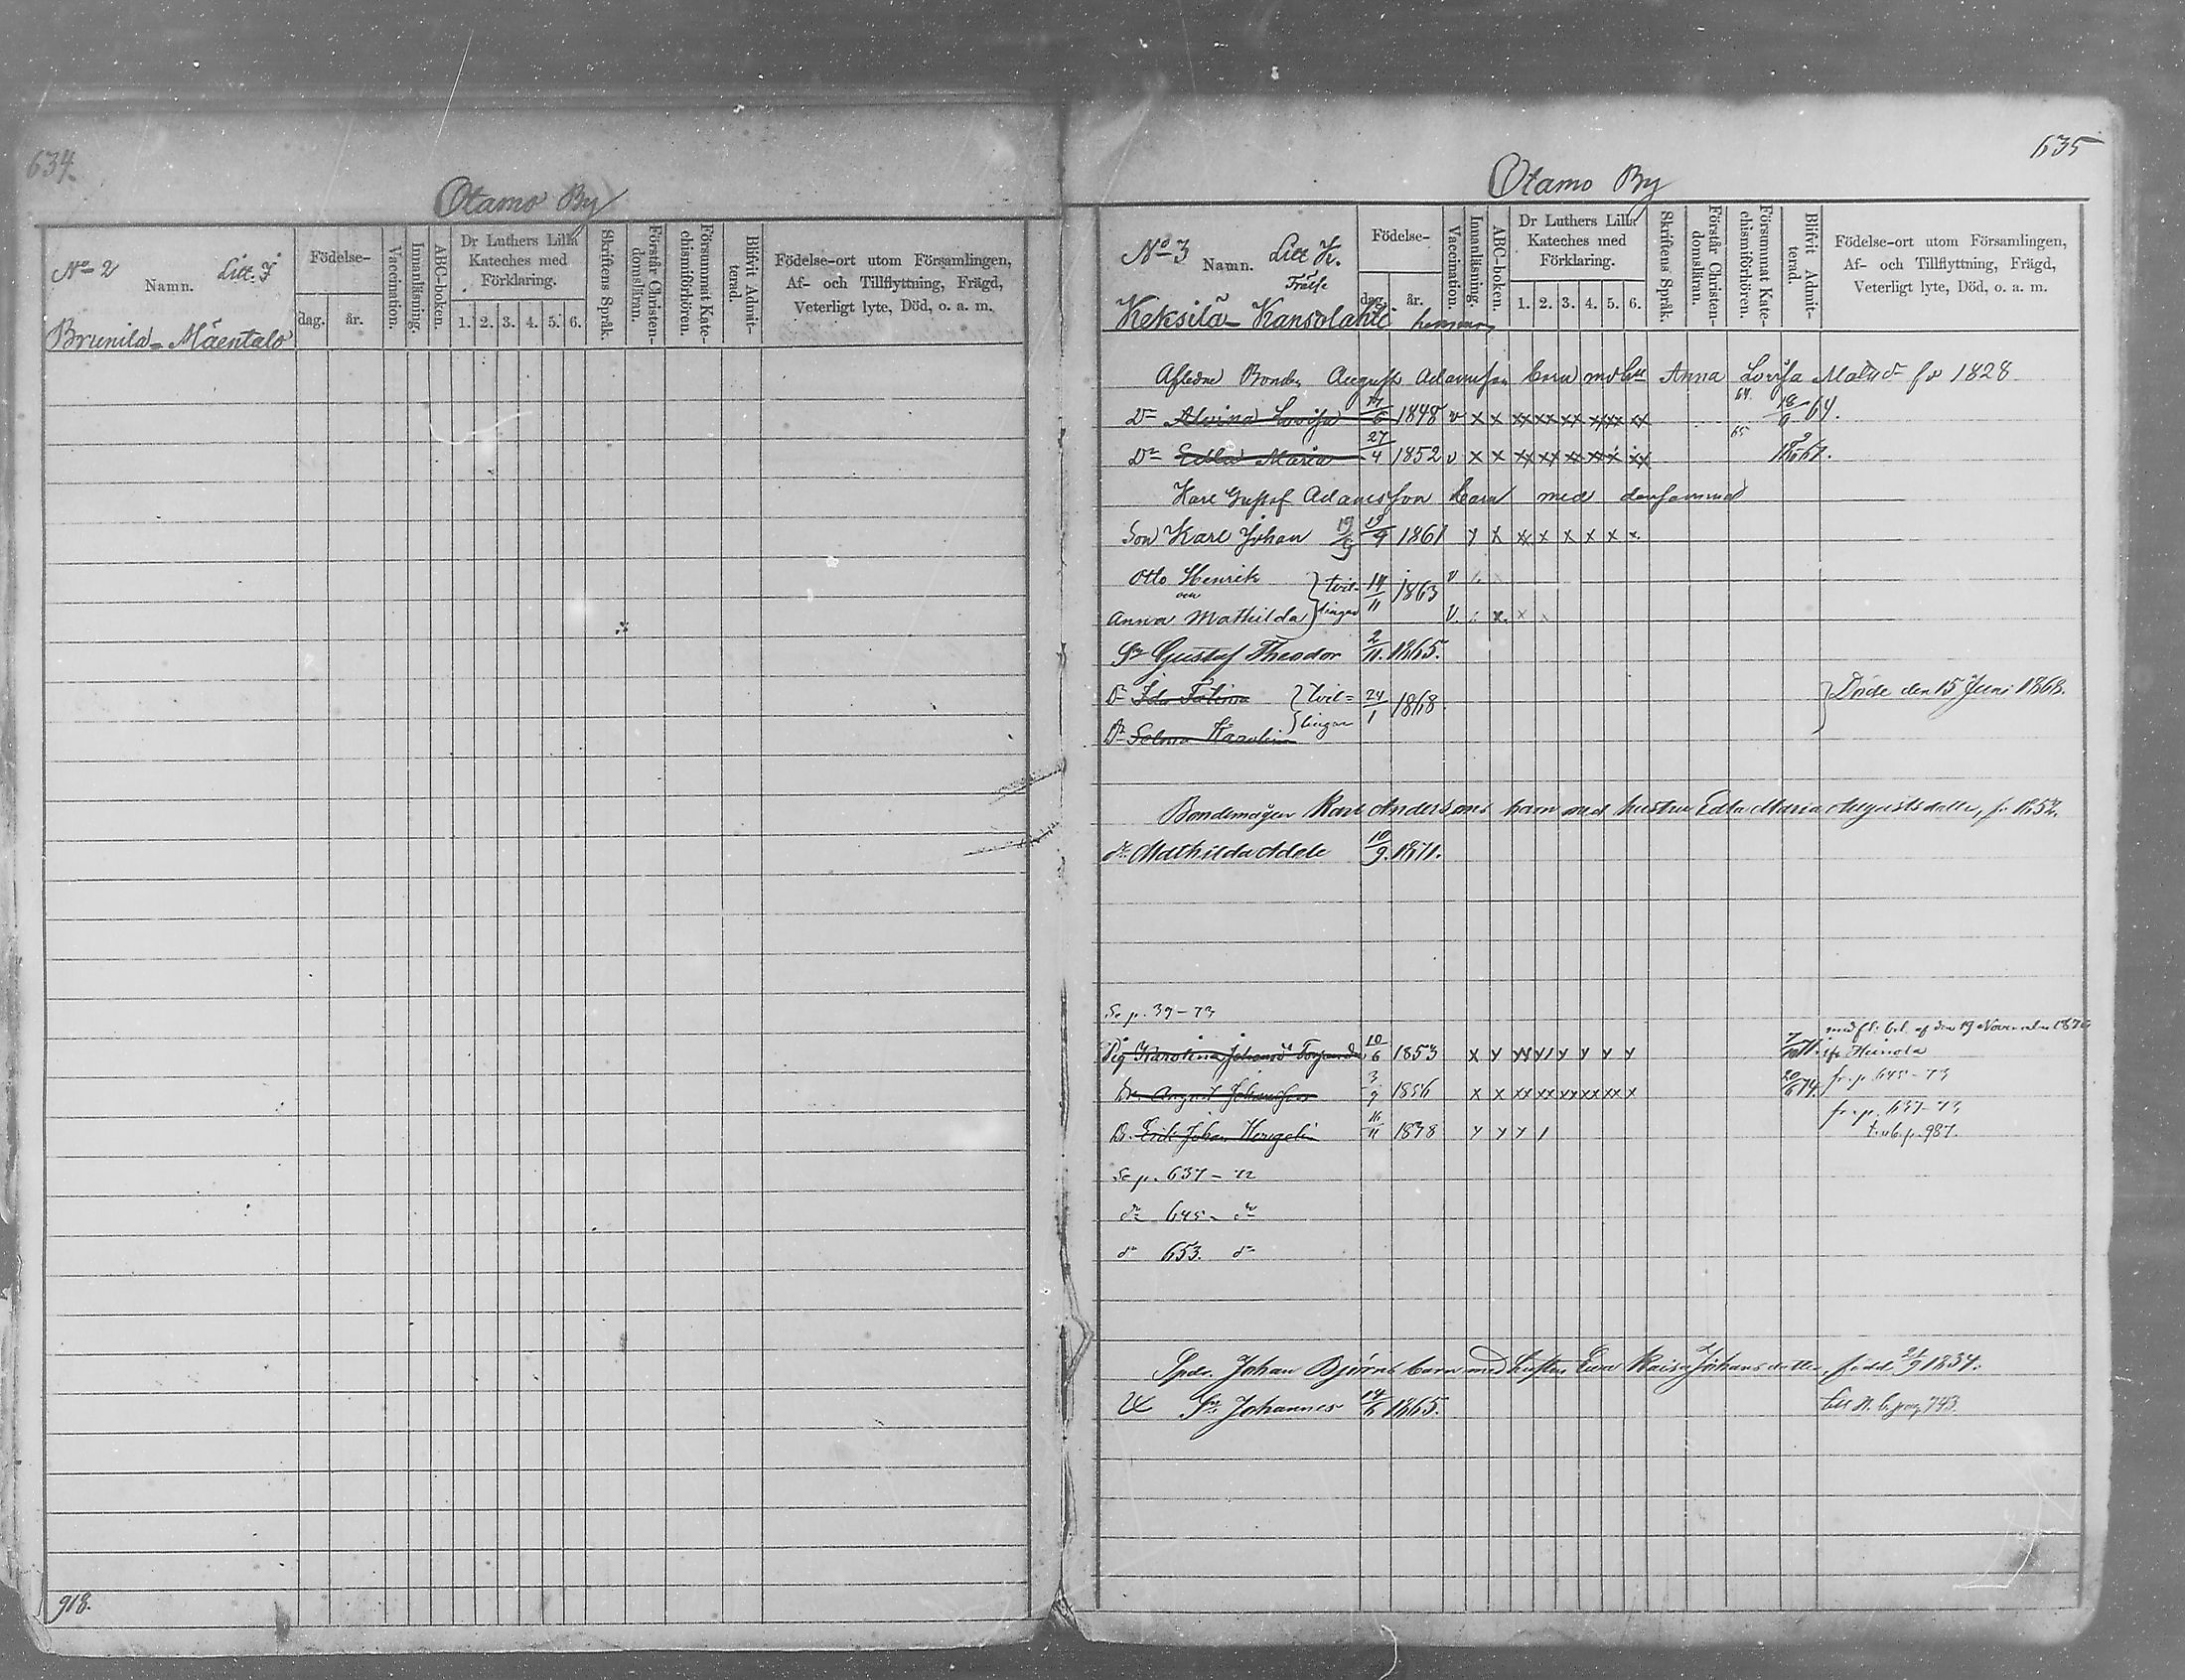 634.
Otamo By
No 2 Namn. Litt. J
Födelse-
dag. år.
Vaccination.
Innanläsning.
ABC-boken.
Dr Luthers Lilla Kateches med Förklaring.
1. 2. 3. 4. 5. 6.
Skriftens Språk.
Förstår Christen-domsläran.
Försummat Kate-chismiförhören.
Blifvit Admit-terad.
Födelse-ort utom Församlingen,
Af- och Tillflyttning, Frägd,
Veterligt lyte, Död, o. a. m.
Brunila- Mäentalo
918.
635
Otamo By
No 3 Namn. Litt K.
Frälse
Födelse-
dag. år.
Vaccination.
Innanläsning.
ABC-boken.
Dr Luthers Lilla Kateches med Förklaring.
1. 2. 3. 4. 5. 6.
Skriftens Språk.
Förstår Christen-domsläran.
Försummat Kate-chismiförhören.
Blifvit Admit-terad.
Födelse-ort utom Församlingen,
Af- och Tillflyttning, Frägd,
Veterligt lyte, Död, o. a. m.
Keksilä- Kansolahti hemman
Afledne Bonden August Adamsson barn med Anna Lovisa f. 1828
Dr Alvina Lovisa 1848 v x x xx xx xx xx xx 64. 18/6 64.
Dr Edla Maria 27/4 1852 v x x xx xx xx xx x xx 65
Karl Gustaf Adamsson barn med densamma
Son Karl Johan 19/9 19/9 1861 y x xx x x x x x
Otto Henrik tvil- 14/11 1863 v
och
Anna Mathilda lingar v. x. x
Sn Gustaf Theodor 2/11. 1865.
Dr Ida tvil= 24/1 1868 Döde den 15 Juni 1868.
Dr Selma Karolina lingar
Bondemågen Karl Anderssons barn med hustru Edla Maria Augustsdotter, f. 1852.
dr Mathilda Adele 10/9. 1871.
Se p. 39-73
med fl. bet. af den 19 November
Pig Karolina Johansd 10/6 1853 x y xx y y y y Heinola
Dr. August Johansson 3/9 1856 x x xx xx xx xx x x 20/6 74. fr. p. 645-73
fr. p. 637-73
Dr. Erik Johan 16/11 1838 y y y / t. n. b. p. 987.
Se p. 637-72
do 645- do
do 653. do
Johan Björns barn med hustru Eva Kaisa Johansdotter, född 21/9 1834.
Sn Johannes 14/6 1865. till n. b. pag 743.